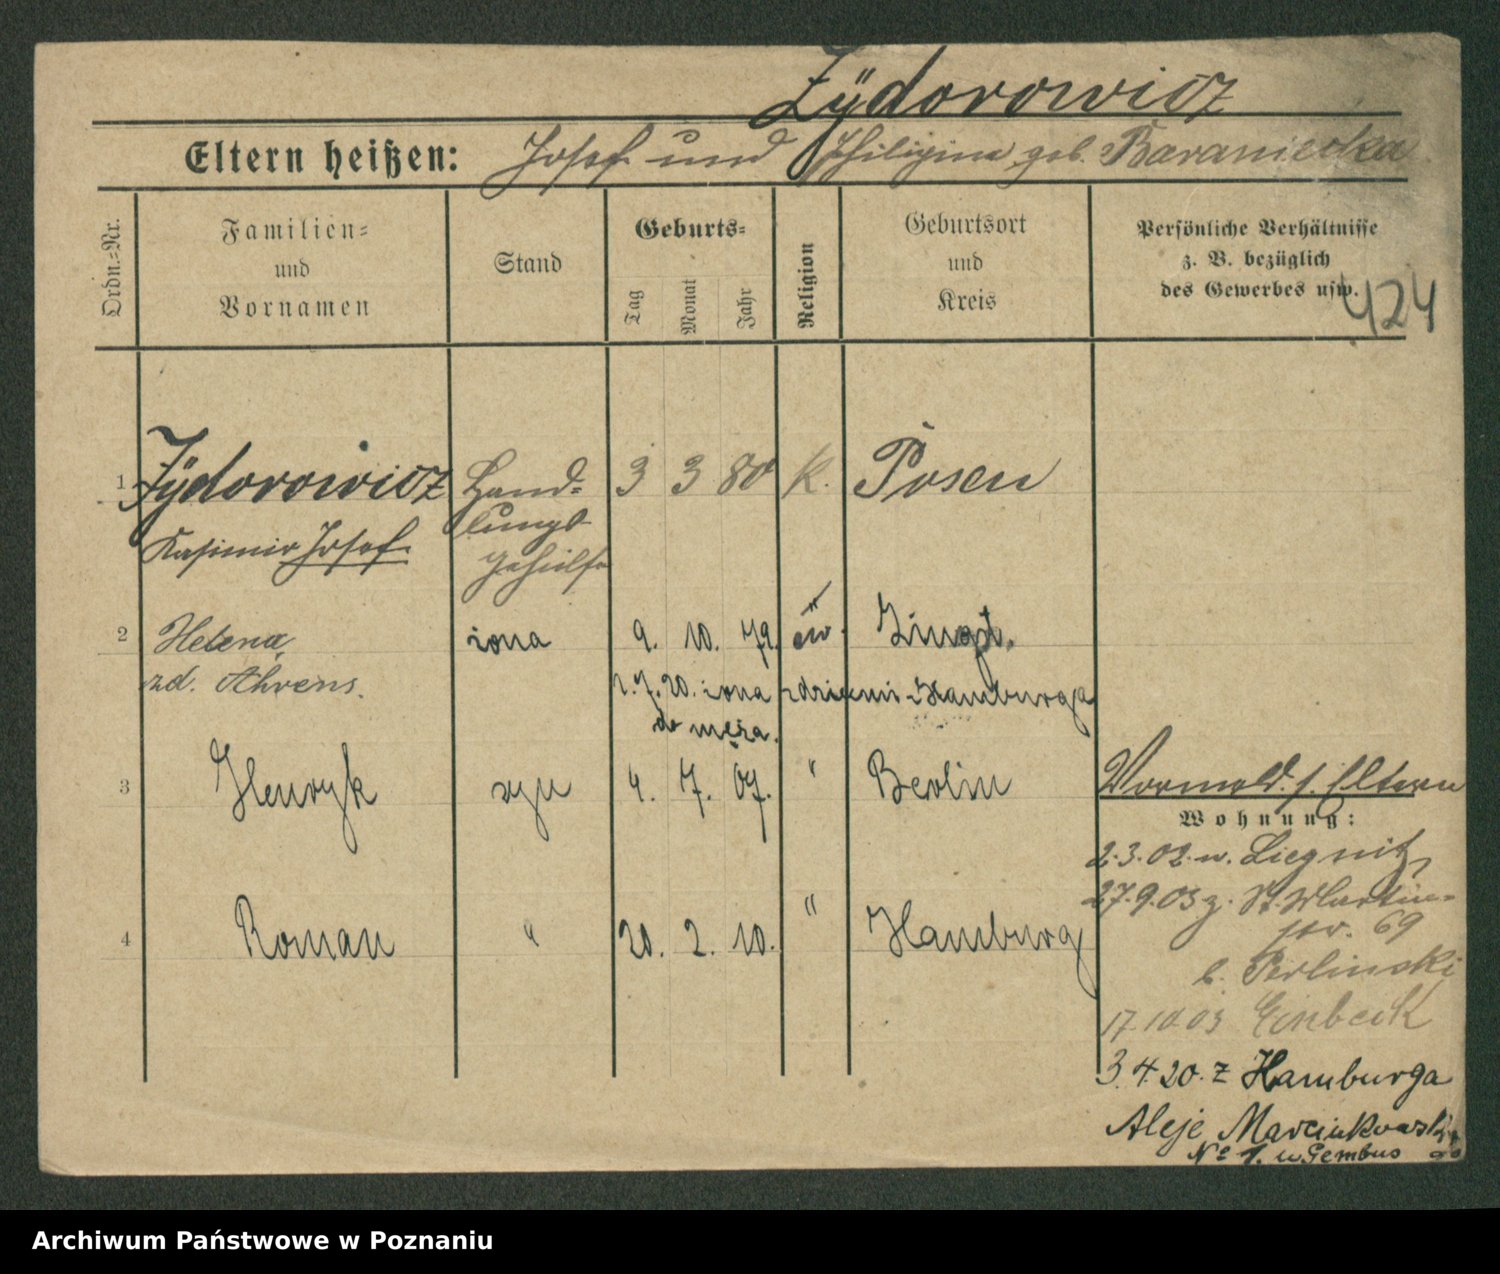 Zÿdorowicz
Eltern heißen: Josef und Philipine geb. Baraniecka
Ordn.-Nr.
Familien-
und
Vornamen
Stand
Geburts-
Tag
Monat
Jahr
Religion
Geburtsort
und
Kreis
Persönliche Verhältnisse
z. B. bezüglich
des Gewerbes usw.
424
1 Zÿdorowicz Hand- 3 3 80 k. Posen
Kasimir Josef lungs-
gehülfe
2 Helena żona 9. 10. 79. ew.
zd. Ahrens.
2.7.20. żona z dziećmi z Hamburga
do męża.
3 Henryk syn 4. 7. 07. " Berlin
4 Roman " 20. 2. 10. " Hamburg
Vormeld. s. Eltern
Wohnung:
2.3.02 n. Liegnitz
27.9.03 z. St. Martin-
str. 69
b. Perlinski
17.10 03 Einbeck
3.4.20. z Hamburga
Aleje Marcinkowski
No 1. u Gembus
Archiwum Państwowe w Poznaniu